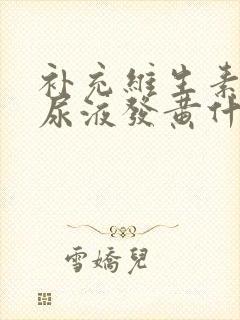 补充維生素
尿液發黃什
雪嬌兒